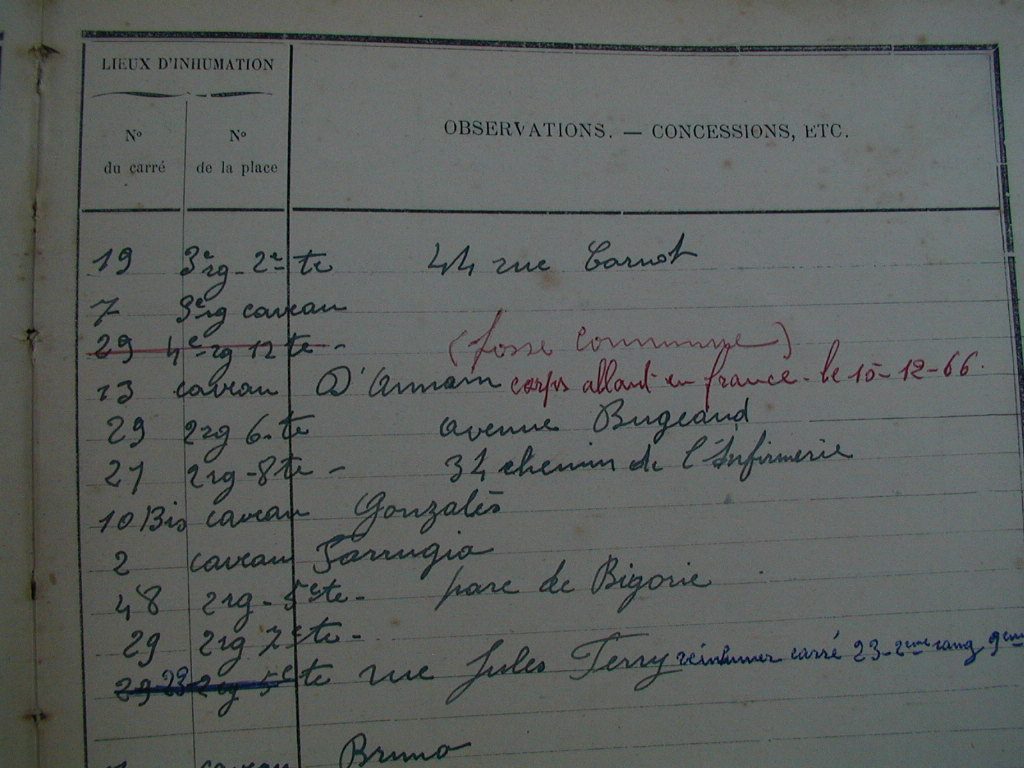 LIEUX D'INHUMATION
OBSERVATIONS. — CONCESSIONS, ETC.
No du carré
No de la place
19 3e rg - 2e te 44 rue Carnot
7 3e rg caveau
29 4e rg 12 te - (fosse commune)
13 caveau D'Annam corps allant en france - le 10-12-66.
29 2 rg 6 - te avenue Bugeaud
27 2 rg - 8 te - 34 chemin de l'Infirmerie
10 Bis caveau Gonzalès
2 caveau Farrugia
48 2 rg - 5e te - parc de Bigorie
29 2 rg 7e te -
29 23 2 rg 5e te rue Jules Ferry réinhumer carré 23 - 2eme rang 9eme
caveau Bruno